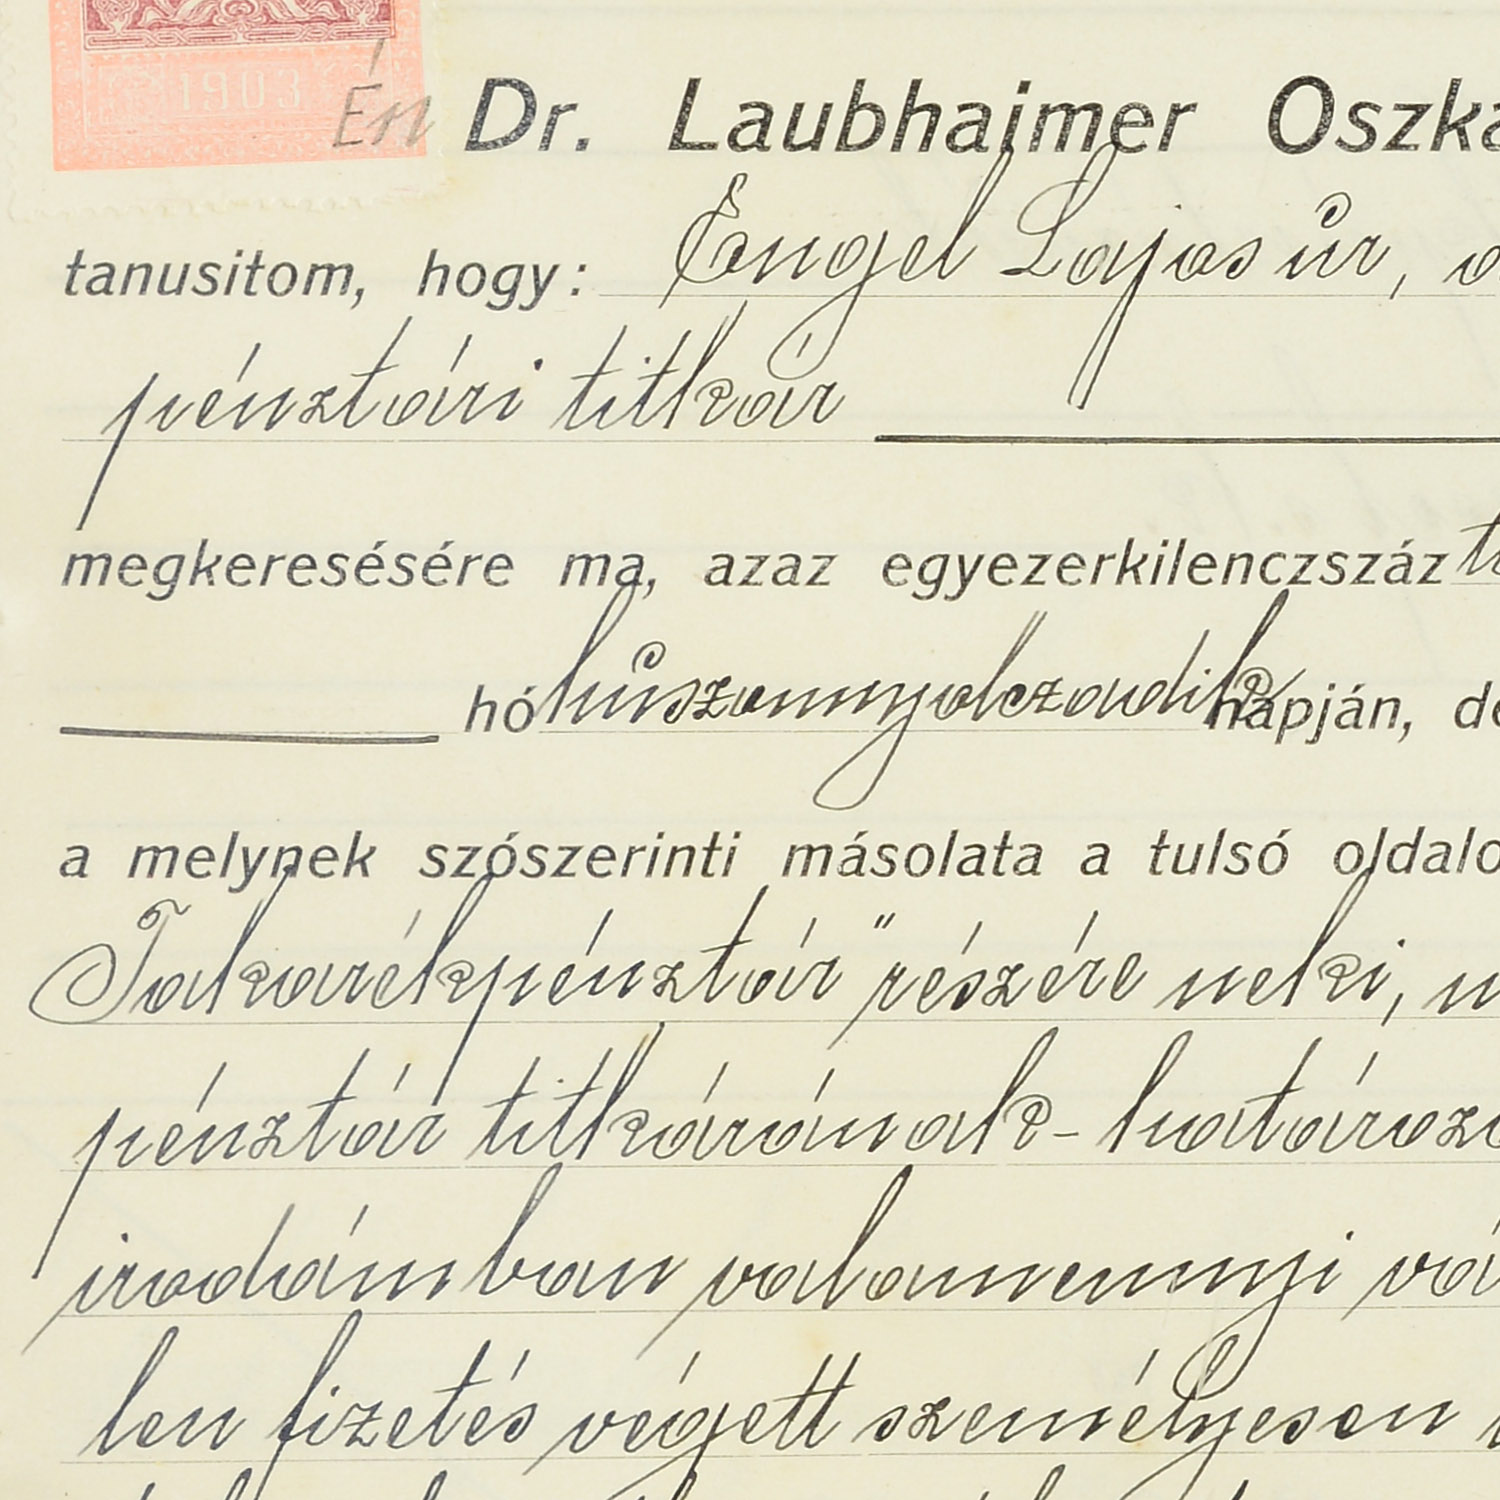 1903
Én Dr. Laubhaimer Oszká
tanusitom, hogy: Engel Lajos úr, a
pénztári titkár
megkeresésére ma, azaz egyezerkilenczszáz ti
hó húszonnyolczadik napján, de
a melynek szószerinti másolata a tulsó oldalo
Takarékpénztár" részére neki, m
pénztár titkárának - határozo
irodámban valamennyi vá
len fizetés végett személyesen